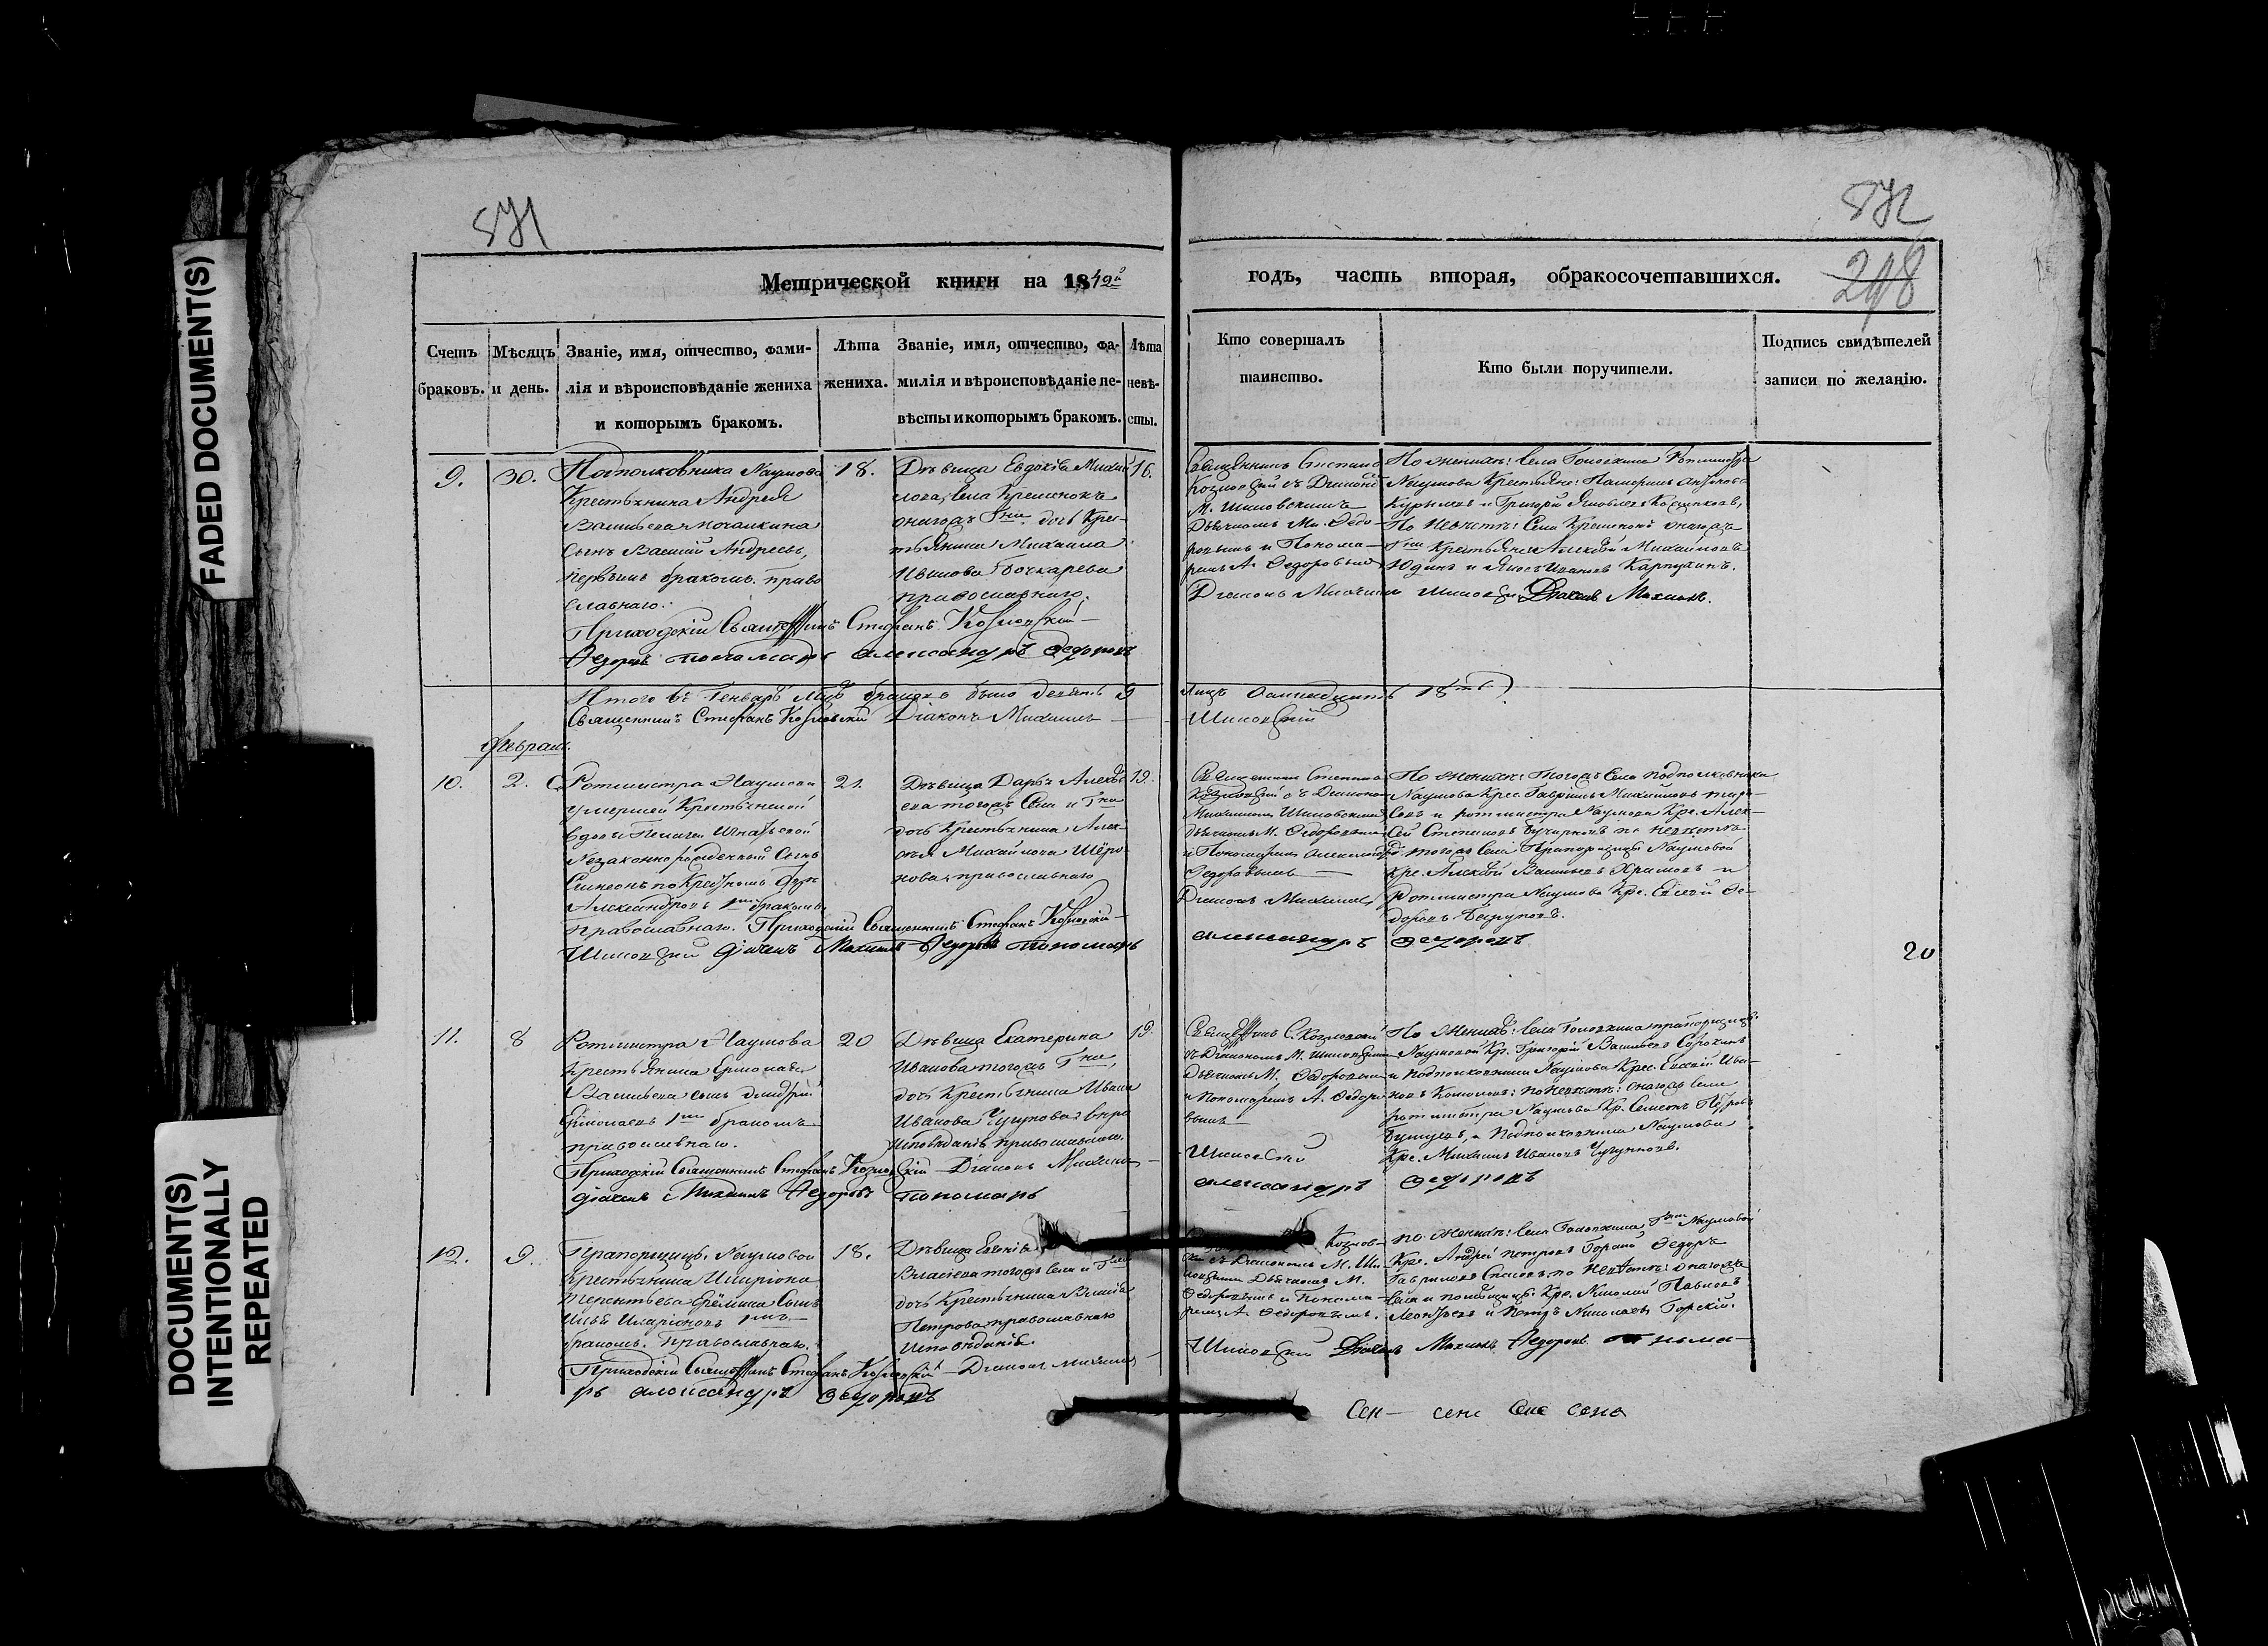 FADED DOCUMENT(S)
DOCUMENT(S)
INTENTIONALLY
REPEATED
871
872
248
Метрической книги на 1842й
годъ, часть вторая, о бракосочетавшихся.
Счетъ браковъ.
Мѣсяцъ и день.
Званіе, имя, отчество, фами-
лія и вѣроисповѣданіе жениха
и которымъ бракомъ.
Лѣта
жениха.
Званіе, имя, отчество, фа-
милія и вѣроисповѣданіе не-
вѣсты и которымъ бракомъ.
Лѣта
невѣ-
сты.
Кто совершалъ
таинство.
Кто были поручители.
Подпись свидѣтелей
записи по желанію.
9.
30.
Подполковника Наумова
Крестьянина Андрея
Васильева
сынъ Василій Андреевъ,
первымъ бракомъ. право
славнаго.
18.
Дѣвица Евдокія Михай
лова, села Кременокъ
онагожъ Гна. дочь Крес-
тьянина Михаила
Иванова Бочкарева
православнаго.
16.
Священникъ Стефанъ
Козловскій съ Діакономъ
М. Шиловскимъ
Дьячкомъ Ми. Ѳедо-
ровымъ и Понома-
ремъ А. Ѳедоровымъ
По женихѣ: села Головкина Ротмистра
Наумова Крестьяне:
и Григорій Яковлевъ
По невѣстѣ: Села Кременокъ онагожъ
Гна Крестьяне Алексѣй Михайловъ
Юдинъ и Яковъ Ивановъ Карпухинъ.
Діаконъ Михаилъ Шиловскій Дьячекъ Михаилъ
Приходскій Священникъ Стефанъ Козловскій
Ѳедоровъ пономарь александръ Ѳедоровъ
Итого въ Генварѣ мцѣ браковъ было девять 9
лицъ осмнадцать 18ть
Священникъ Стефанъ Козловскій Діаконъ Михаилъ
Шиловскій
Февраль.
10.
2.
Ротмистра Наумова
умершей Крестьянской
вдовы Пелагеи Игнатьевой
Незаконно рожденный сынъ
Симеонъ по Крестномъ отцѣ
Александровъ 1мъ бракомъ
православнаго.
21.
Дѣвица Дарья Алексѣ
ева тогожъ Села и Гна
дочь Крестьянина Алек-
сѣя Михайлова
православнаго
19.
Священникъ Стефанъ
Козловскій съ Діакономъ
Михаиломъ Шиловскимъ
дьячкомъ М. Ѳедоровымъ
и Пономаремъ Александр
Ѳедоровымъ
По женихѣ: тогожъ Села подполковника
Наумова Крес. Гавріилъ Михайловъ
и ротмистра Наумова Кре. Алек-
сѣй Степановъ по невѣстѣ
тогожъ села Прапорщицы Наумовой
Кре. Алексѣй Васильевъ Храмовъ и
Ротмистра Наумова Кре. Евсей Ѳе-
доровъ
Приходскій Священникъ Стефанъ Козловскій
Діаконъ Михаилъ
Шиловскій Дьячекъ Михаилъ Ѳедоровъ пономарь
александръ Ѳедоровъ
20
11.
8
Ротмистра Наумова
Крестьянина Ермолая
Васильева сынъ Дмитрій
Ермолаевъ 1мъ бракомъ
православнаго.
20
Дѣвица Екатерина
Иванова тогожъ Гна,
дочь Крестьянина Ивана
Иванова Чугунова вѣро
исповѣданія православнаго.
19.
Священникъ С. Козловскій
съ Діакономъ М. Шиловскимъ
Дьячкомъ М. Ѳедоровымъ
и Пономаремъ А. Ѳедоро
вымъ
По женихѣ: Села Головкина прапорщицы
Наумовой Кр. Григорій Васильевъ Сорокинъ
и Подполковника Наумова Крес. Евсей Ива-
новъ по невѣстѣ: онагожъ села
ротмистра Наумова Кр. Семенъ Петровъ
и Подполковника Наумова
Кре. Михаилъ Ивановъ Чугуновъ.
Приходскій Священникъ Стефанъ Козловскій Діаконъ Михаилъ
Шиловскій
дьячекъ Михаилъ Ѳедоровъ пономарь
александръ Ѳедоровъ
12.
9.
Прапорщицы Наумовой
Крестьянина Иларіона
Терентьева Ерёмина сынъ
Илья Иларіоновъ 1мъ
бракомъ. Православнаго.
18.
Дѣвица
Власіева тогожъ села и Гна
дочь Крестьянина Власія
Петрова православнаго
исповѣданія.
Козлов-
скій съ Діакономъ М. Ши-
ловскимъ Дьячкомъ М.
Ѳедоровымъ и Понома-
ремъ А. Ѳедоровымъ.
по женихѣ: Села Головкина Гжи Наумовой
Кре. Андрей Петровъ Ѳедоръ
Гавриловъ по невѣстѣ: онагожъ
села и помѣщицы Кре. Николай Павловъ
Леонтьевъ и Петръ Николаевъ Горскій.
Приходскій Священникъ Стефанъ Козловскій Діаконъ Михаилъ
Шиловскій Дьячекъ Михаилъ Ѳедоровъ понома-
рь александръ Ѳедоровъ
Сен— сени сене сена